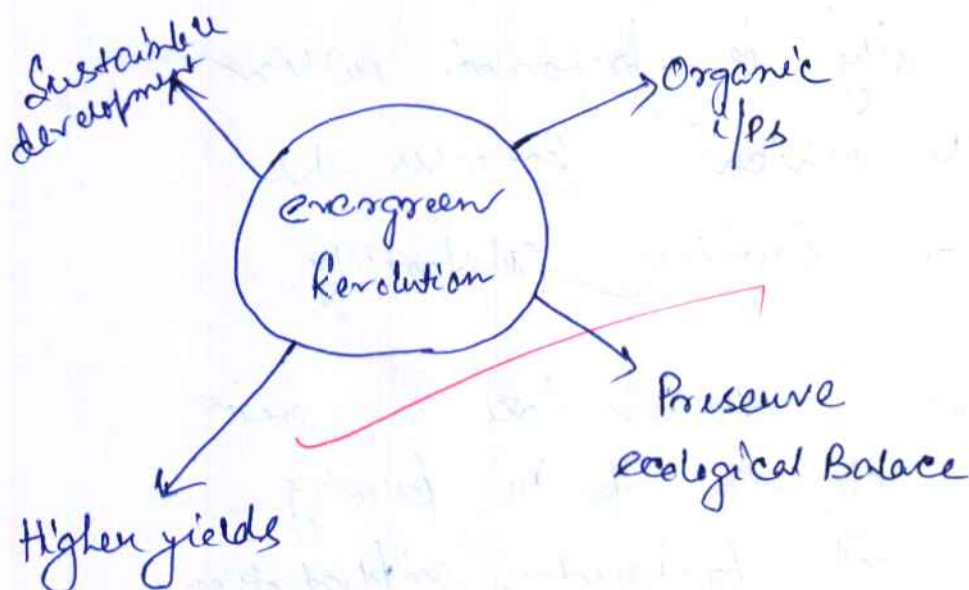 Sustainble
development
Organic
i/Ps
evergreen
Revolution
Preseuve
ecological Balace
Higher yields